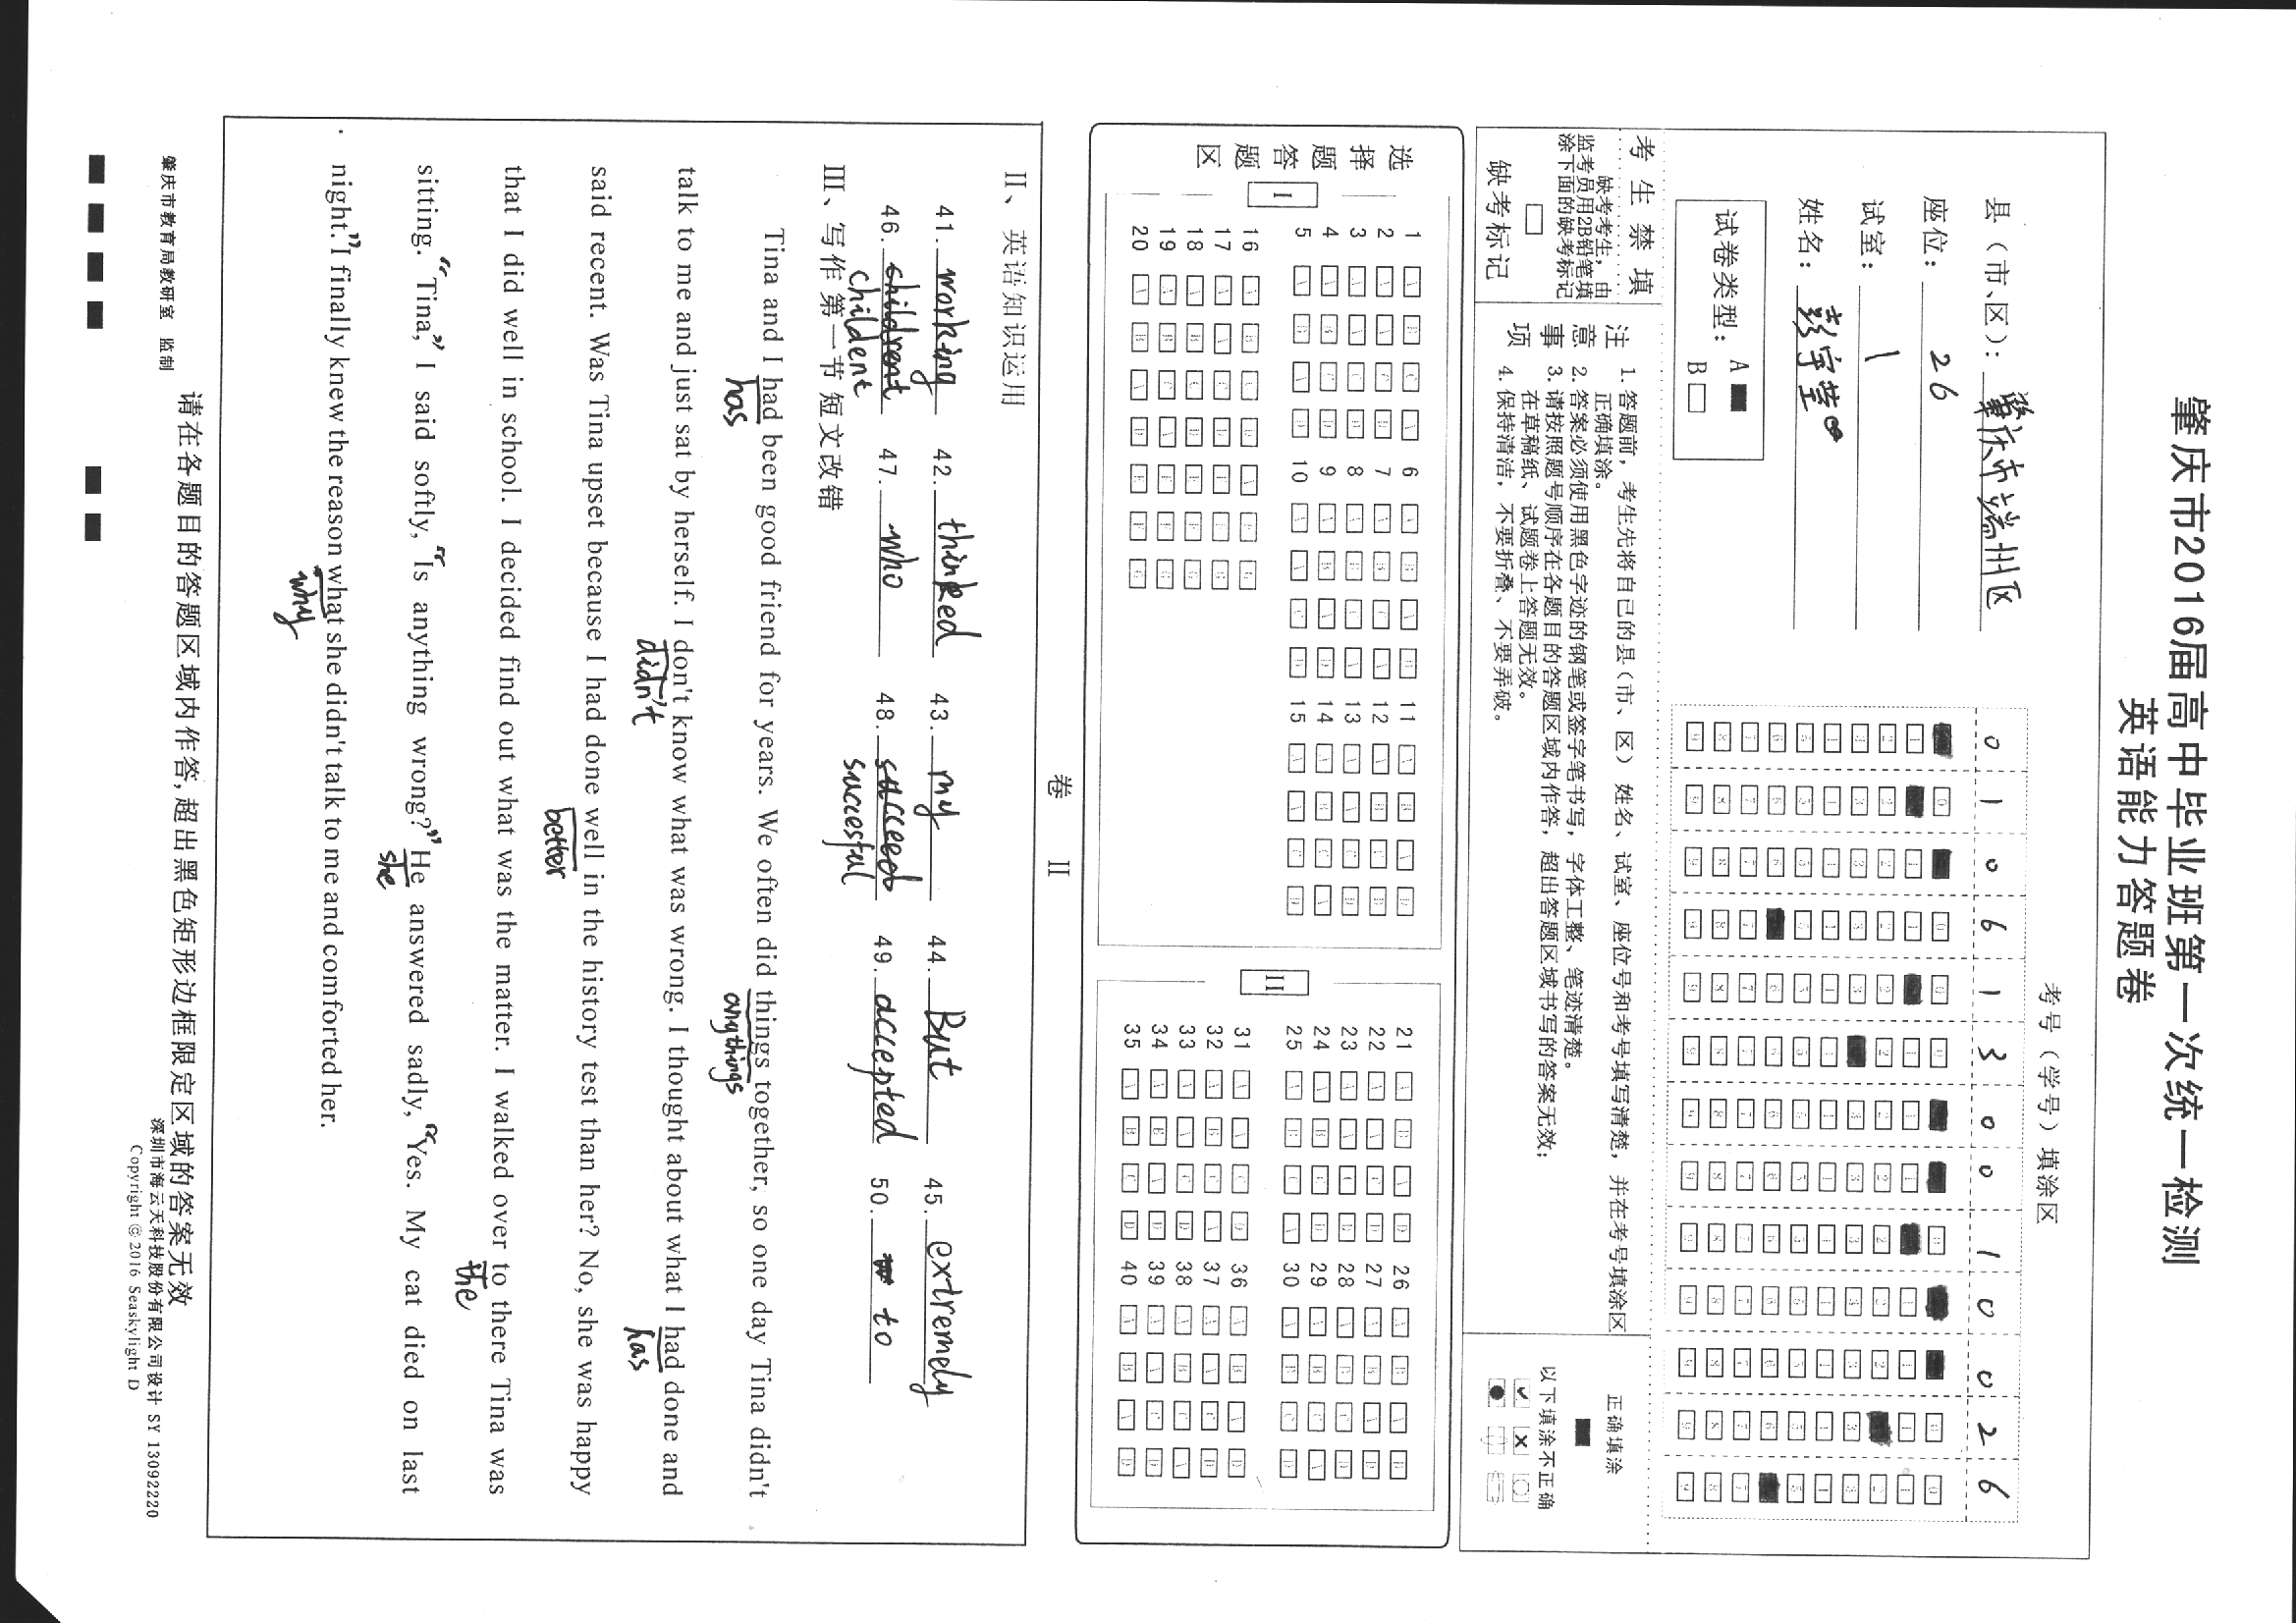 肇庆市2016届高中毕业班第一次统一检测
英语能力答题卷
县（市、区）：肇庆市端州区
座位：26
试室：1
姓名：彭宇莹
试卷类型：A
B
考号（学号）填涂区
0 1 0 6 1 3 0 0 1 0 0 2 6
考生禁填
缺考考生，由
监考员用2B铅笔填
涂下面的缺考标记
缺考标记
注意事项
1. 答题前，考生先将自己的县（市、区）姓名、试室、座位号和考号填写清楚，并在考号填涂区
正确填涂。
2. 答案必须使用黑色字迹的钢笔或签字笔书写，字体工整、笔迹清楚。
3. 请按照题号顺序在各题目的答题区域内作答，超出答题区域书写的答案无效；
在草稿纸、试题卷上答题无效。
4. 保持清洁，不要折叠、不要弄破。
正确填涂
以下填涂不正确
选择题答题区
I
1 6 11
2 7 12
3 8 13
4 9 14
5 10 15
16
17
18
19
20
II
21 26
22 27
23 28
24 29
25 30
31 36
32 37
33 38
34 39
35 40
卷 II
II、英语知识运用
41. working 42. thinked 43. my 44. But 45. extremely
46. childrent 47. who 48. succeed 49. accepted 50. to
childent succesful
III、写作第一节短文改错
Tina and I had been good friend for years. We often did things together, so one day Tina didn't
has anythings
talk to me and just sat by herself. I don't know what was wrong. I thought about what I had done and
didn't has
said recent. Was Tina upset because I had done well in the history test than her? No, she was happy
better
that I did well in school. I decided find out what was the matter. I walked over to there Tina was
the
sitting. “Tina,” I said softly, “Is anything wrong?” He answered sadly, “Yes. My cat died on last
she
night.” I finally knew the reason what she didn't talk to me and comforted her.
why
请在各题目的答题区域内作答，超出黑色矩形边框限定区域的答案无效
肇庆市教育局教研室 监制
深圳市海云天科技股份有限公司设计 SY 13092220
Copyright © 2016 Seaskylight D